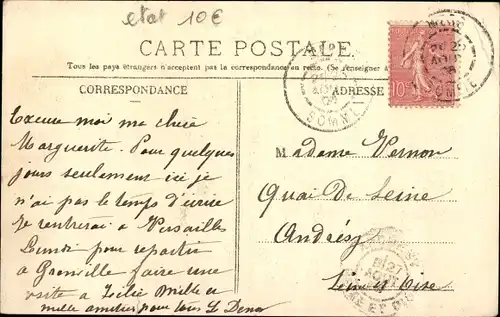 etat 10€
CARTE POSTALE
Tous les pays étrangers n'acceptent pas la correspondance au recto. (Se renseigner à
CORRESPONDANCE
ADRESSE
SOMME
10
Excuse moi ma chère
Marguerite. Pour quelques
jours seulement ici je
n'ai pas le temps d'écrire
Je rentrerai à Versailles
Lundi pour repartir
à Granville faire une
visite à Mille et
mille amitiés pour tous
Madame Vernon
Quai De Seine
Andrésy
Seine et Oise